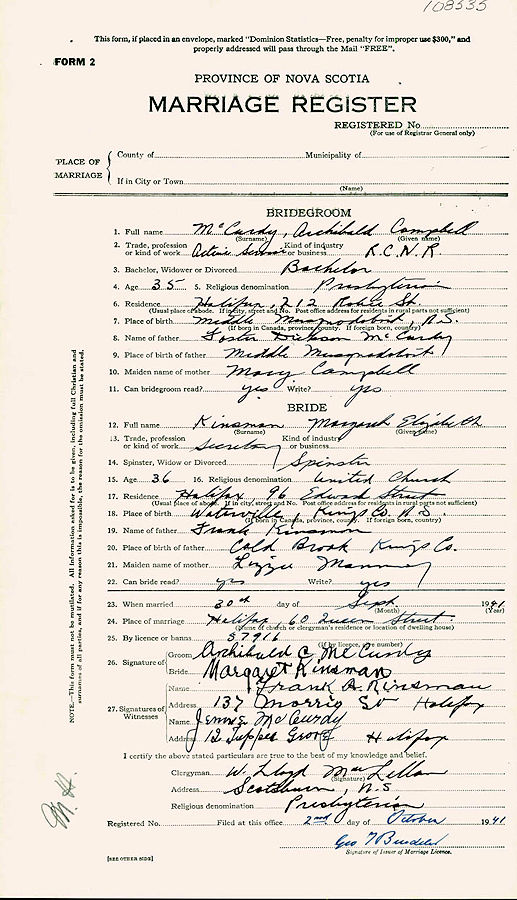 108535
This form, if placed in an envelope, marked "Dominion Statistics—Free, penalty for improper use $300," and
properly addressed will pass through the Mail "FREE".
FORM 2
PROVINCE OF NOVA SCOTIA
MARRIAGE REGISTER
REGISTERED No.
(For use of Registrar General only)
PLACE OF MARRIAGE
County of Municipality of
If in City or Town
(Name)
BRIDEGROOM
1. Full name McCurdy, Archibald Campbell
(Surname) (Given name)
2. Trade, profession or kind of work Active Service Kind of industry or business R.C.N.R.
3. Bachelor, Widower or Divorced Bachelor
4. Age 35 5. Religious denomination Presbyterian
6. Residence Halifax, 212 Robie St.
(Usual place of abode. If in city, street and No. Post office address for residents in rural parts not sufficient)
7. Place of birth Middle Musquodoboit, N.S.
(If born in Canada, province, county. If foreign born, country)
8. Name of father Foster Dickson McCurdy
9. Place of birth of father Middle Musquodoboit
10. Maiden name of mother Mary Campbell
11. Can bridegroom read? yes Write? yes
BRIDE
12. Full name Kinsman Margaret Elizabeth
(Surname) (Given name)
13. Trade, profession or kind of work Secretary Kind of industry or business
14. Spinster, Widow or Divorced Spinster
15. Age 36 16. Religious denomination United Church
17. Residence Halifax 96 Edward Street
(Usual place of abode. If in city, street and No. Post office address for residents in rural parts not sufficient)
18. Place of birth Waterville Kings Co. N.S.
(If born in Canada, province, county. If foreign born, country)
19. Name of father Frank Kinsman
20. Place of birth of father Cold Brook Kings Co.
21. Maiden name of mother Lizzie
22. Can bride read? yes Write? yes
23. When married 30th day of Sept. 1941
(Month) (Year)
24. Place of marriage Halifax, 60 Queen Street.
(Name of church or clergyman's residence or location of dwelling house)
25. By licence or banns 57916
(If by licence, give number)
26. Signature of
Groom Archibald C McCurdy
Bride Margaret Kinsman
27. Signatures of Witnesses
Name Frank A. Kinsman
Address 137 Morris St Halifax
Name Jennie McCurdy
Address 12 Tupper Grove Halifax
I certify the above stated particulars are true to the best of my knowledge and belief.
Clergyman W. Lloyd MacLellan
(Signature)
Address Scotsburn, N.S
Religious denomination Presbyterian
Registered No. Filed at this office 2nd day of October 1941
Geo
Signature of Issuer of Marriage Licence.
[SEE OTHER SIDE]
NOTE—This form must not be mutilated. All information asked for is to be given, including full Christian and
surnames of all parties, and if for any reason this is impossible, the reason for the omission must be stated.
M. H.